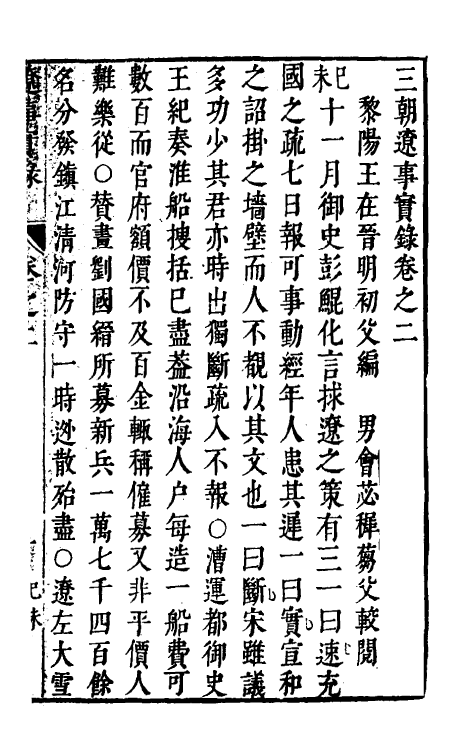 三朝遼事實錄卷之二
黎陽王在晉明初父編　男會苾穉蒭父較閱
己未十一月御史彭鯤化言捄遼之策有三一曰速充
國之疏七日報可事動經年人患其遲一曰實宣和
之詔掛之墻壁而人不觀以其文也一曰斷宋雖議
多功少其君亦時出獨斷疏入不報○漕運都御史
王紀奏淮船搜括已盡葢沿海人户每造一船費可
數百而官府額價不及百金輒稱僱募又非平價人
難樂從○贊畫劉國縉所募新兵一萬七千四百餘
名分發鎮江清河防守一時迯散殆盡○遼左大雪
卷之二
己未